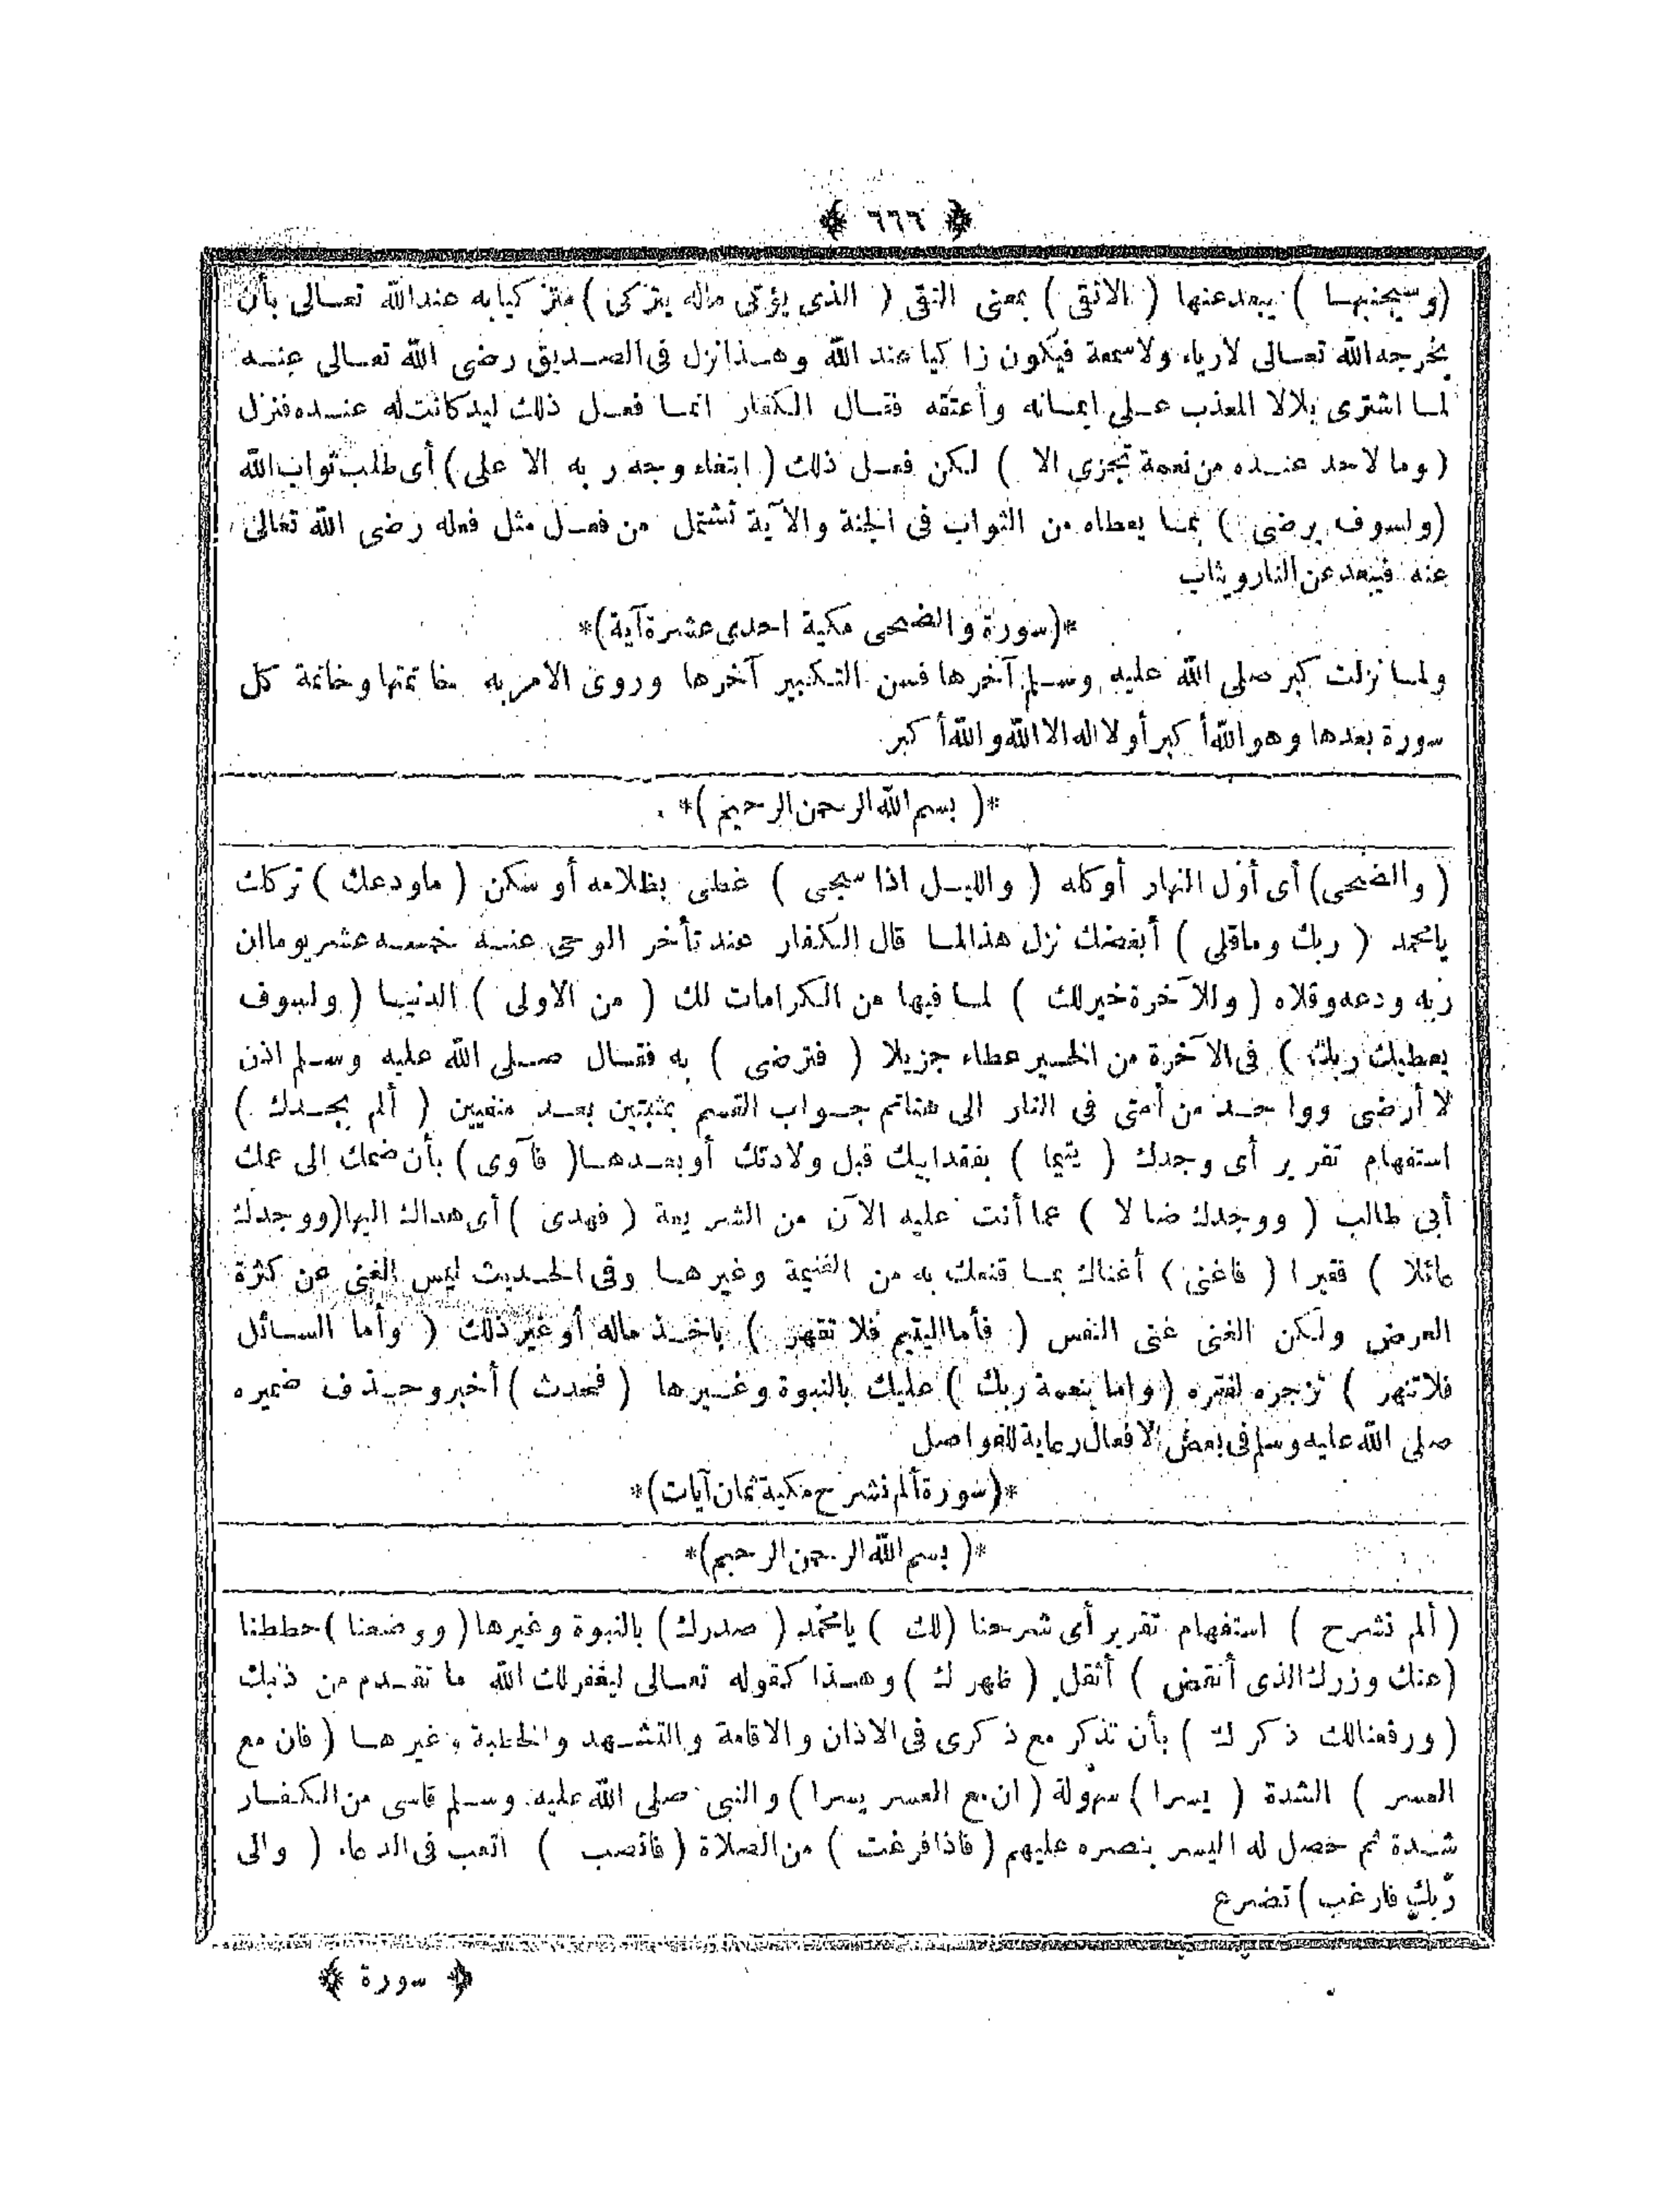 ﴿ ٦٦٦ ﴾
(وسيجنبها ) يبعد عنها ( الاتقى ) بمعنى التقى ( الذى يؤتى ماله يتزكى ) متزكيا به عند الله تعالى بأن
يخرجه الله تعالى لارياء ولا سمعة فيكون زاكيا عند الله وهذا نزل فى الصديق رضى الله تعالى عنه
لما اشترى بلالا المعذب على ايمانه وأعتقه فقال الكفار انما فعل ذلك ليد كانت له عنده فنزل
( وما لاحد عنده من نعمة تجزى الا ) لكن فعل ذلك ( ابتغاء وجه ربه الاعلى ) أى طلب ثواب الله
(ولسوف يرضى ) بما يعطاه من الثواب فى الجنة والآية تشتمل من فعل مثل فعله رضى الله تعالى
عنه فيبعد عن النار ويثاب
*(سورة والضحى مكية احدى عشرة آية)*
ولما نزلت كبر صلى الله عليه وسلم آخرها فسن التكبير آخرها وروى الامر به خاتمتها وخاتمة كل
سورة بعدها وهو الله أكبر أو لا اله الا الله والله أكبر
*( بسم الله الرحمن الرحيم )*
( والضحى) أى أول النهار أو كله ( والليل اذا سجى ) غطى بظلامه أو سكن ( ما ودعك ) تركك
يا محمد ( ربك وما قلى ) أبغضك نزل هذا لما قال الكفار عند تأخر الوحى عنه خمسه عشر يوما ان
ربه ودعه وقلاه ( وللآخرة خير لك ) لما فيها من الكرامات لك ( من الاولى ) الدنيا ( ولسوف
يعطيك ربك ) فى الآخرة من الخير عطاء جزيلا ( فترضى ) به فقال صلى الله عليه وسلم اذن
لا أرضى وواحد من أمتى فى النار الى هنا تم جواب القسم بمثبتين بعد منفيين ( ألم يجدك )
استفهام تقرير أى وجدك ( يتيما ) بفقد ابيك قبل ولادتك أو بعدها ( فآوى ) بأن ضمك الى عمك
أبى طالب ( ووجدك ضالا ) عما أنت عليه الآن من الشريعة ( فهدى ) أى هداك اليها (ووجدك
عائلا ) فقيرا ( فاغنى ) أغناك بما قنعك به من الغنيمة وغيرها وفى الحديث ليس الغنى عن كثرة
العرض ولكن الغنى غنى النفس ( فأما اليتيم فلا تقهر ) باخذ ماله أو غير ذلك ( وأما السائل
فلا تنهر ) تزجره لفقره ( واما بنعمة ربك ) عليك بالنبوة وغيرها ( فحدث ) أخبر وحذف ضميره
صلى الله عليه وسلم فى بعض الافعال رعاية للفواصل
*(سورة ألم نشرح مكية ثمان آيات)*
*( بسم الله الرحمن الرحيم)*
( ألم نشرح ) استفهام تقرير أى شرحنا (لك ) يا محمد ( صدرك) بالنبوة وغيرها ( ووضعنا ) حططنا
(عنك وزرك الذى أنقض ) أثقل ( ظهرك ) وهذا كقوله تعالى ليغفر لك الله ما تقدم من ذنبك
( ورفعنا لك ذكرك ) بأن تذكر مع ذكرى فى الاذان والاقامة والتشهد والخطبة وغيرها ( فان مع
العسر ) الشدة ( يسرا ) سهولة ( ان مع العسر يسرا ) والنبى صلى الله عليه وسلم قاسى من الكفار
شدة ثم حصل له اليسر بنصره عليهم ( فاذا فرغت ) من الصلاة ( فانصب ) اتعب فى الدعاء ( والى
ربك فارغب ) تضرع
﴿ سورة ﴾